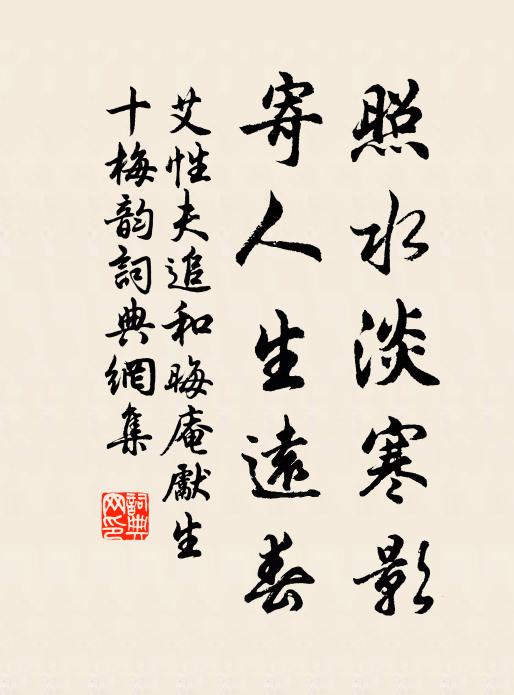 照水淡寒影
寄人生遠春
艾性夫追和晦庵獻生
十梅韵詞典網集
詞典网印